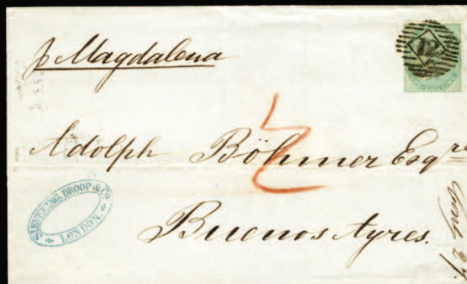 p Magdalena
12
Adolph Böhmer Esqre
Buenos Ayres.
DROOP & Co
LONDON